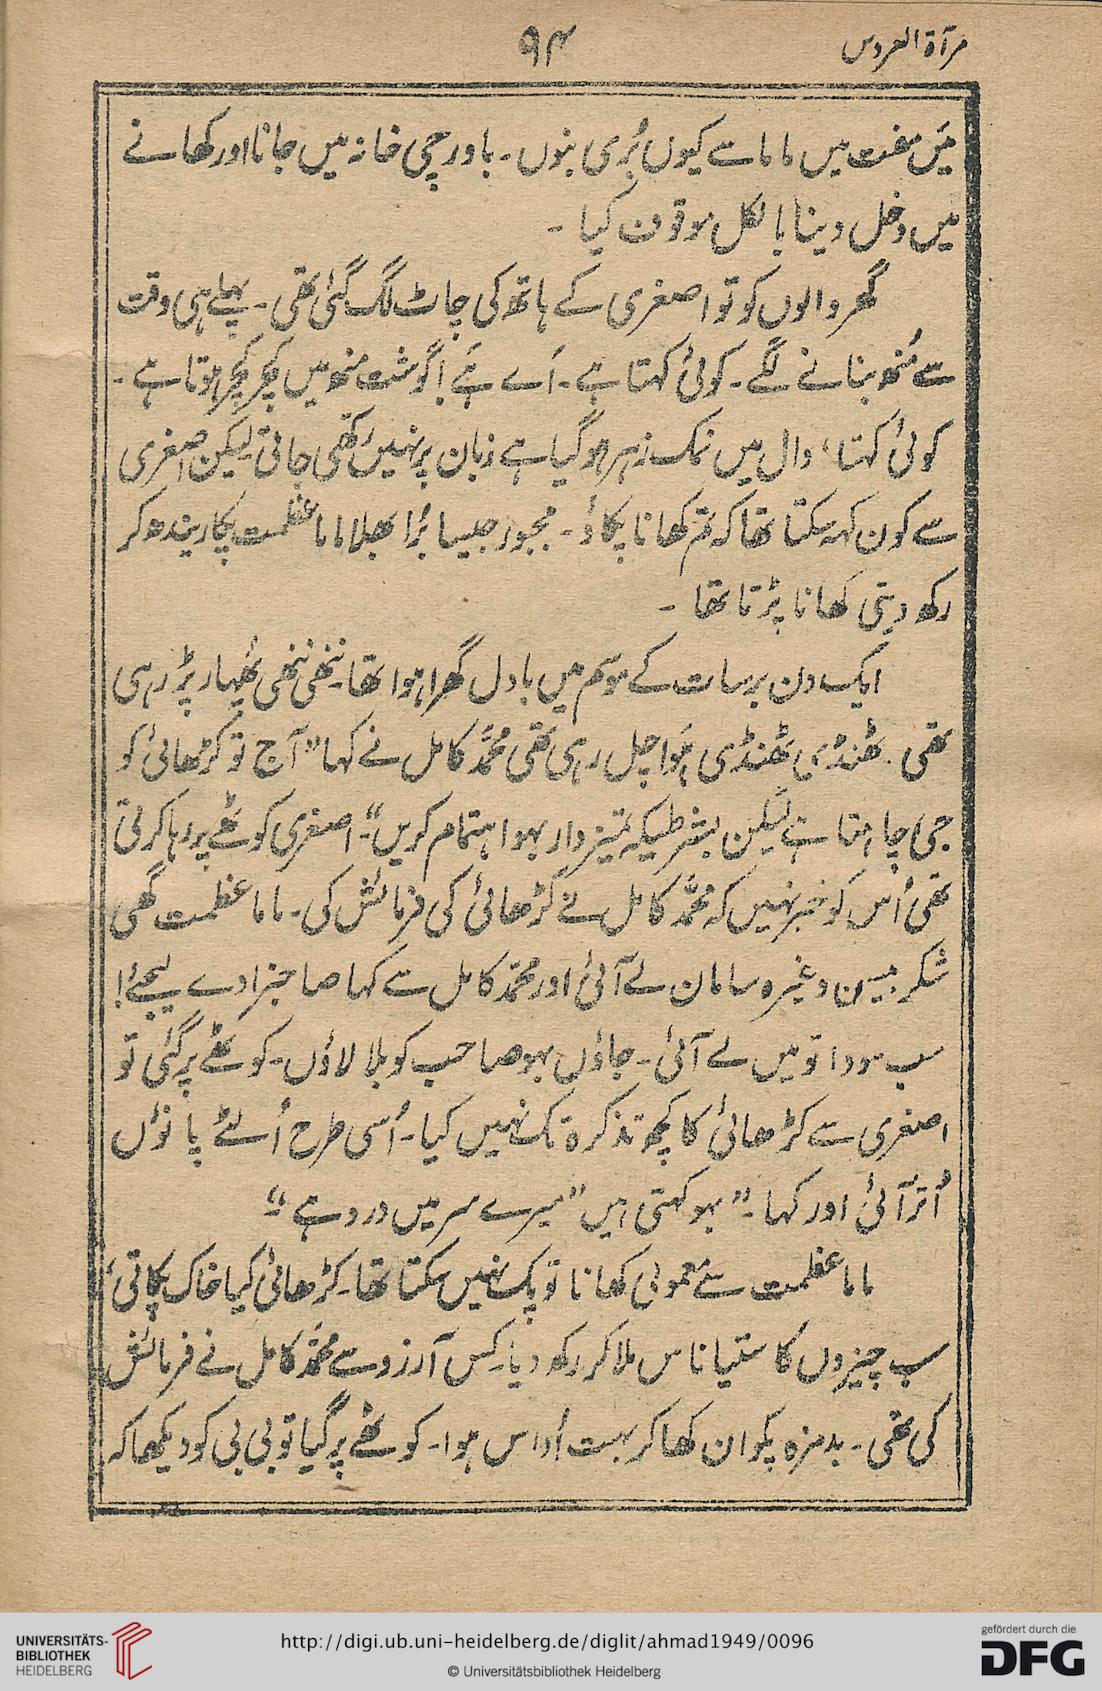 مرآة العروس
۹۴
مَیں مفت میں ماما سے کیوں بُری بنوں۔ باورچی خانہ میں جانا اور کھانے
میں دخل دینا بالکل موقوف کیا ۔
گھر والوں کو تو اصغری کے ہاتھ کی چاٹ لگ گئی تھی ۔ پہلے ہی وقت
سے مُنھ بنانے لگے ۔ کوئی کہتا ہے ۔ اَے ہَے! گوشت منھ میں کچر کچر ہوتا ہے ۔
کوئی کہتا، دال میں نمک زہر ہو گیا ہے زبان پر نہیں رکھی جاتی لیکن اصغری
سے کون کہہ سکتا تھا کہ تم کھانا پکاؤ ۔ مجبور جیسا بُرا بھلا ماما عظمت پکا ریندھ کر
رکھ دیتی کھانا پڑتا تھا ۔
ایک دن برسات کے موسم میں بادل گھرا ہوا تھا۔ ننھی ننھی پھُہار پڑ رہی
تھی ۔ ٹھنڈی ٹھنڈی ہَوا چل رہی تھی محمّد کامل نے کہا "آج تو کڑھائی کو
جی چاہتا ہے لیکن بشرطیکہ تمیزدار بہو اہتمام کریں"۔ اصغری کوٹھے پر رہا کرتی
تھی اُس کو خبر نہیں کہ محمّد کامل نے کڑھائی کی فرمائش کی ۔ ماما عظمت گھی
شکر بیسن وغیرہ سامان لے آئی اور محمّد کامل سے کہا صاحبزادے لیجئے!
سب سودا تو میں لے آئی ۔ جاؤں بہو صاحب کو بلا لاؤں۔ کوٹھے پر گئی تو
اصغری سے کڑھائی کا کچھ تذکرہ تک نہیں کیا۔ اُسی طرح اُلٹے پانوٗں
اُتر آئی اور کہا ۔ "بہو کہتی ہیں "میرے سر میں درد ہے"۔
ماما عظمت سے معمولی کھانا تو پک نہیں سکتا تھا۔ کڑھائی کیا خاک پکاتی،
سب چیزوں کا ستیاناس ملا کر رکھ دیا۔ کس آرزو سے محمّد کامل نے فرمائش
کی تھی ۔ بدمزہ پکوان کھا کر بہت اُداس ہوا ۔ کوٹھے پر گیا تو بی بی کو دیکھا کہ
UNIVERSITÄTS-
BIBLIOTHEK
HEIDELBERG
http://digi.ub.uni-heidelberg.de/diglit/ahmad1949/0096
© Universitätsbibliothek Heidelberg
gefördert durch die
DFG